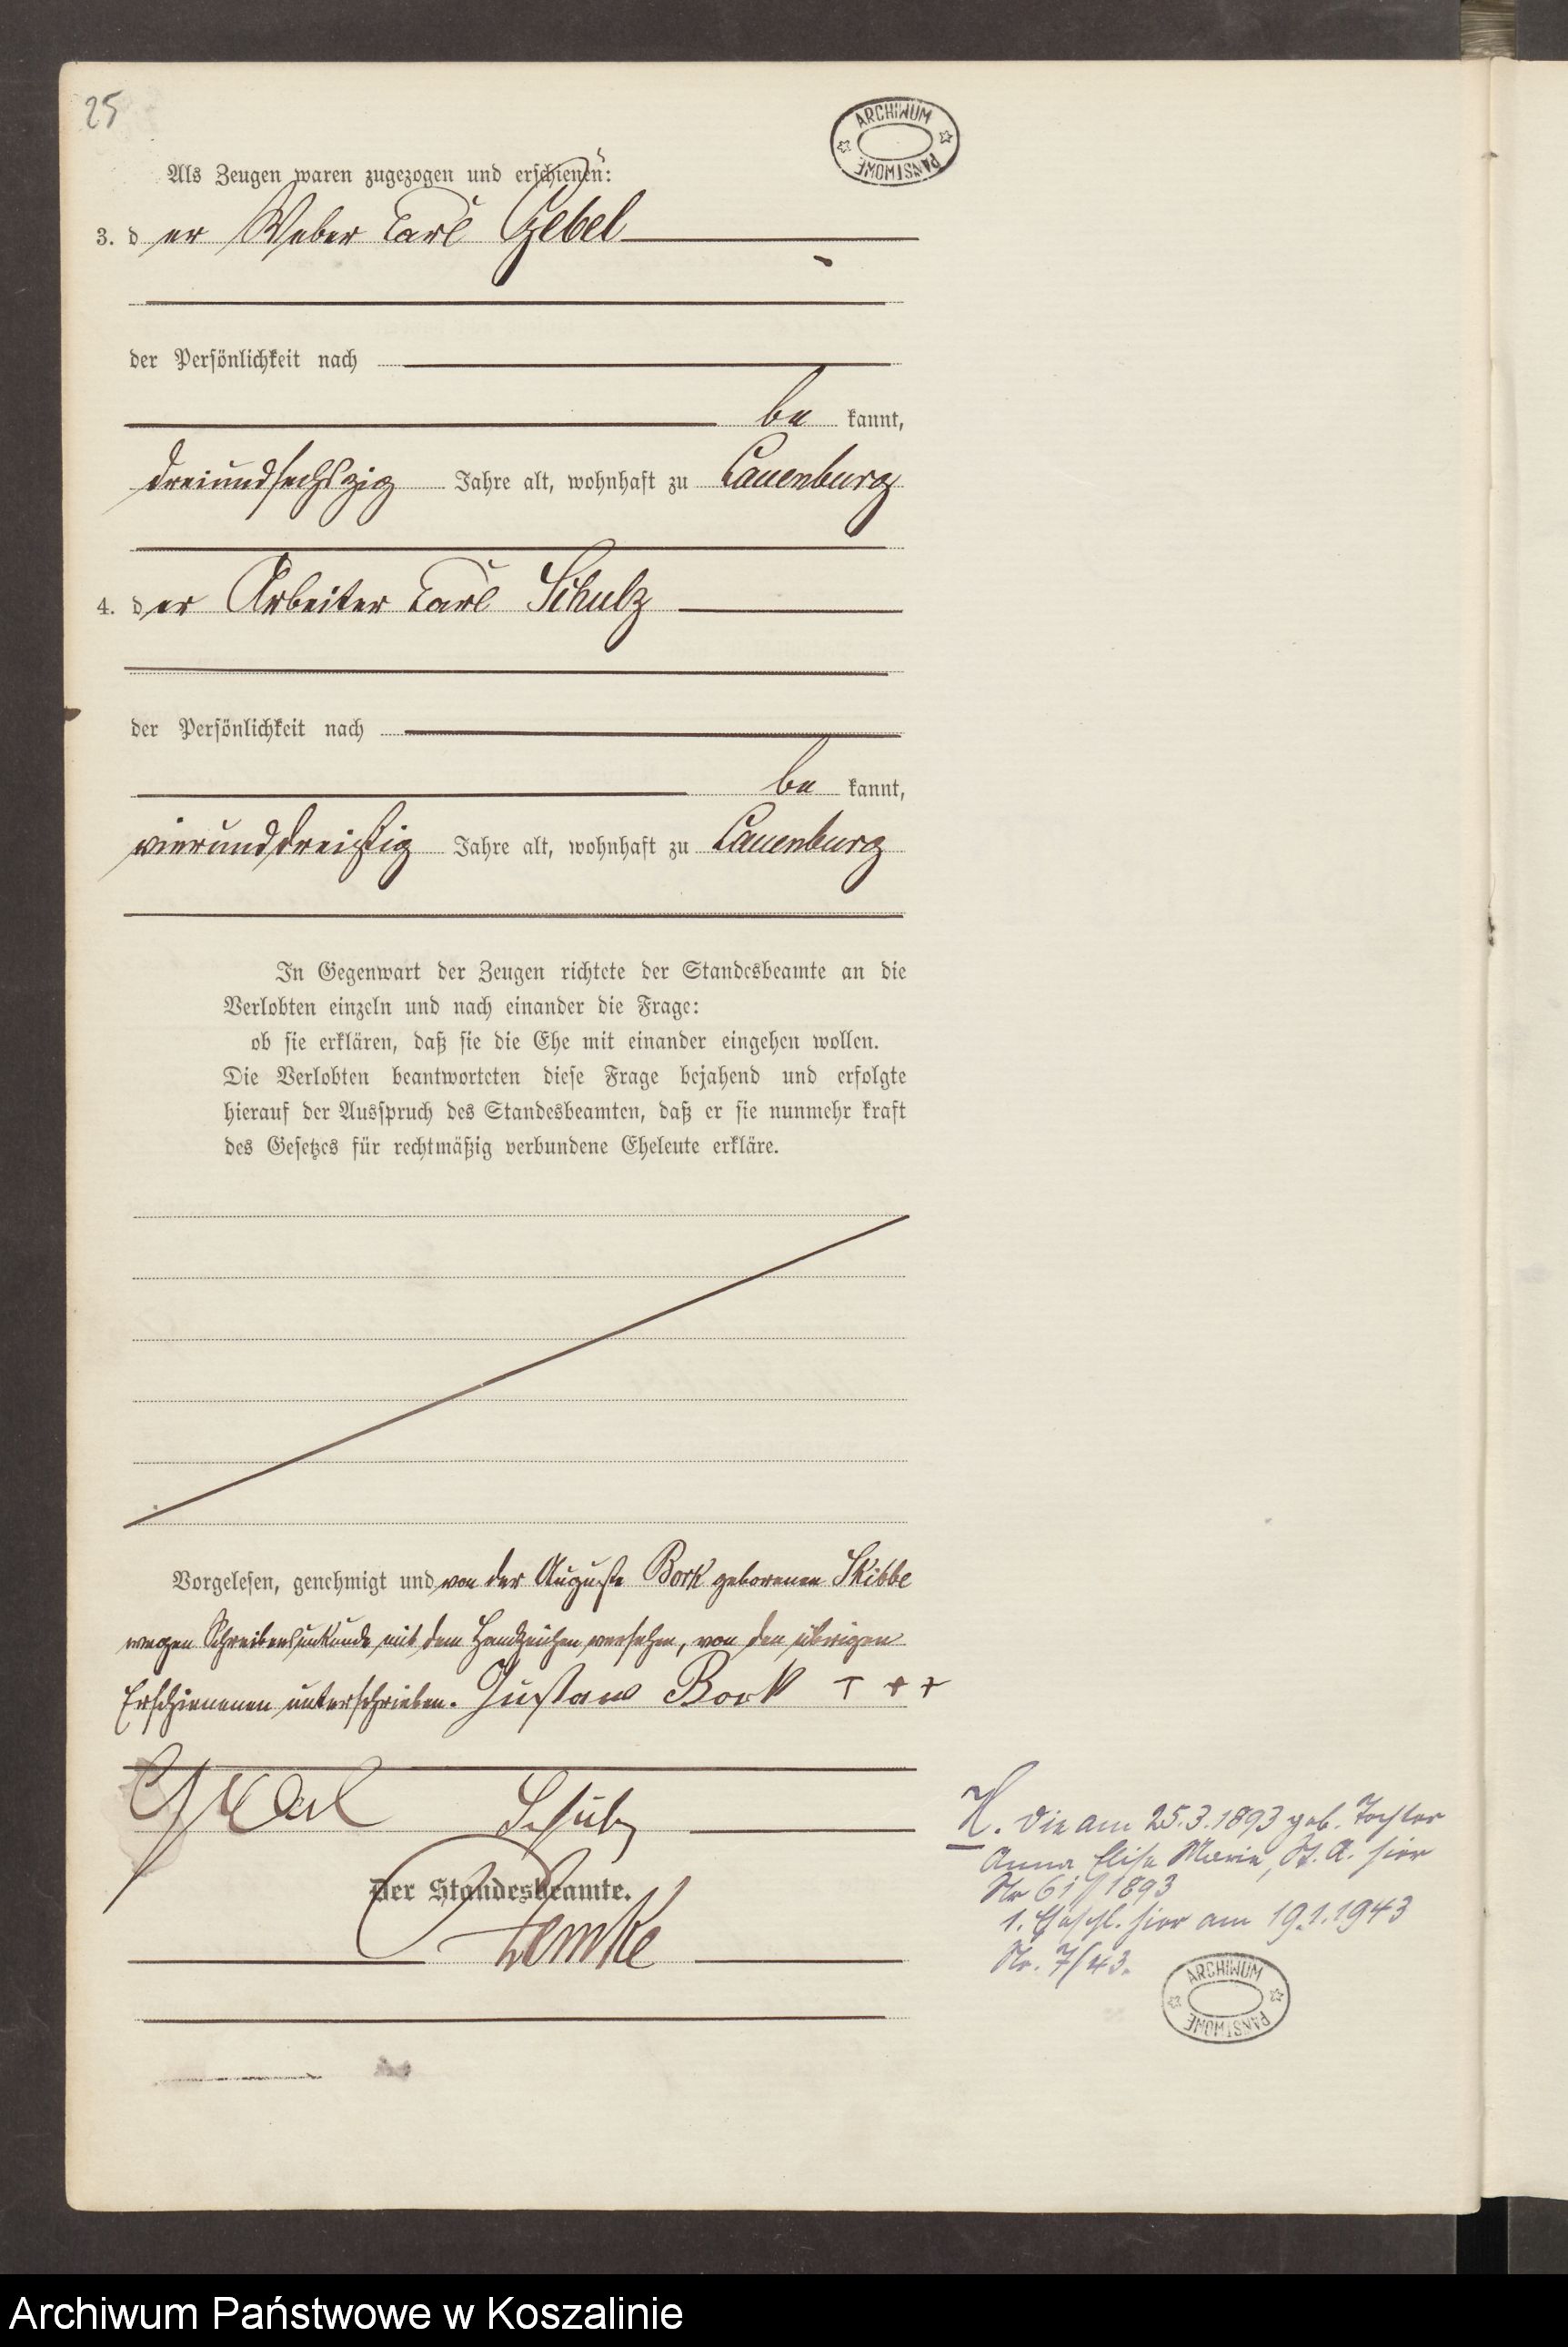 25
ARCHIWUM PAŃSTWOWE
Als Zeugen waren zugezogen und erschienen:
3. d er Weber Carl Gebel
der Persönlichkeit nach
be kannt,
dreiundsechszig Jahre alt, wohnhaft zu Lauenburg
4. d er Arbeiter Carl Schulz
der Persönlichkeit nach
be kannt,
vierunddreißig Jahre alt, wohnhaft zu Lauenburg
In Gegenwart der Zeugen richtete der Standesbeamte an die
Verlobten einzeln und nach einander die Frage:
ob sie erklären, daß sie die Ehe mit einander eingehen wollen.
Die Verlobten beantworteten diese Frage bejahend und erfolgte
hierauf der Ausspruch des Standesbeamten, daß er sie nunmehr kraft
des Gesetzes für rechtmäßig verbundene Eheleute erkläre.
Vorgelesen, genehmigt und von der Auguste Bork geborenen Skibbe
wegen Schreibensunkunde mit dem Handzeichen versehen, von den übrigen
Erschienenen unterschrieben. Gustaw Bork + + +
Schulz
Der Standesbeamte.
Lemke
H. Die am 25.3.1893 geb. Tochter
Anna Elise Marie, St. A. hier
Nr 61/1893
1. Eheschl. hier am 19.1.1943
Nr. 7/43.
ARCHIWUM PAŃSTWOWE
Archiwum Państwowe w Koszalinie